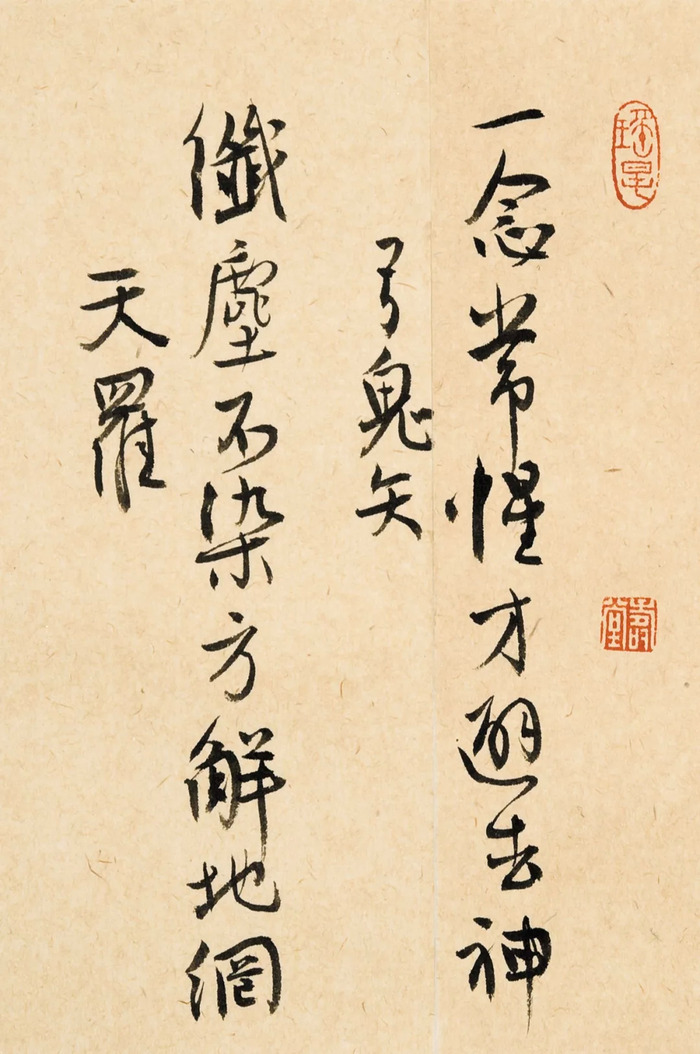 一念常惺才避去神
弓鬼矢
纖塵不染方解地網
天羅